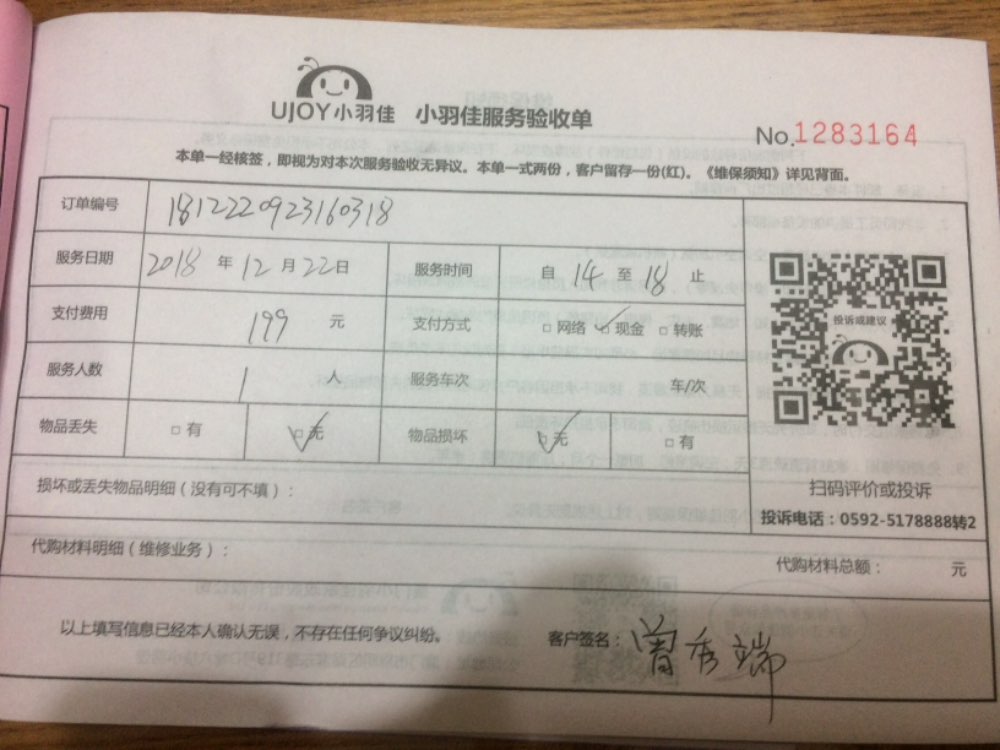 UJOY小羽佳 小羽佳服务验收单
No.1283164
本单一经核签，即视为对本次服务验收无异议。本单一式两份，客户留存一份(红)。《维保须知》详见背面。
订单编号 1812220923160318
服务日期 2018 年 12 月 22 日 服务时间 自 14 至 18 止
支付费用 199 元 支付方式 □网络 ✓□现金 □转账
服务人数 1 人 服务车次 车/次
物品丢失 □有 ☑无 物品损坏 ☑无 □有
投诉或建议
扫码评价或投诉
投诉电话：0592-5178888转2
损坏或丢失物品明细（没有可不填）：
代购材料明细（维修业务）： 代购材料总额： 元
以上填写信息已经本人确认无误，不存在任何争议纠纷。 客户签名：曾秀端